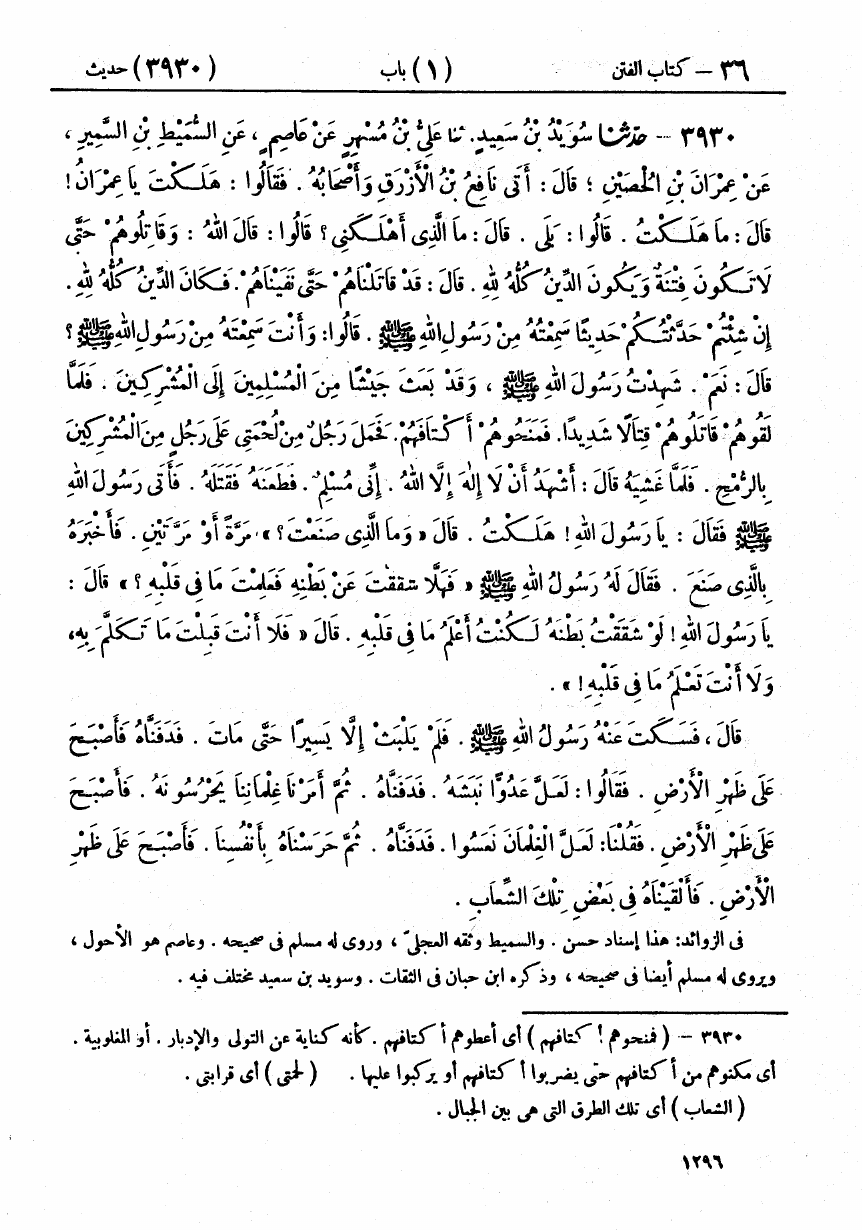 ٣٦ – كتاب الفتن (١) باب (٣٩٣٠) حديث
٣٩٣٠ – حدثنا سُوَيْدُ بْنُ سَعِيدٍ. ثنا عَلِيُّ بْنُ مُسْهِرٍ عَنْ عَاصِمٍ، عَنِ السُّمَيْطِ بْنِ السَّمِيرِ،
عَنْ عِمْرَانَ بْنِ الْحُصَيْنِ؛ قَالَ: أَتَى نَافِعُ بْنُ الْأَزْرَقِ وَأَصْحَابُهُ. فَقَالُوا: هَلَكْتَ يَا عِمْرَانُ!
قَالَ: مَا هَلَكْتُ. قَالُوا: بَلَى. قَالَ: مَا الَّذِى أَهْلَكَنِى؟ قَالُوا: قَالَ اللهُ: وَقَاتِلُوهُمْ حَتَّى
لَا تَكُونَ فِتْنَةٌ وَيَكُونَ الدِّينُ كُلُّهُ لِلهِ. قَالَ: قَدْ قَاتَلْنَاهُمْ حَتَّى نَفَيْنَاهُمْ. فَكَانَ الدِّينُ كُلُّهُ لِلهِ.
إِنْ شِئْتُمْ حَدَّثْتُكُمْ حَدِيثًا سَمِعْتُهُ مِنْ رَسُولِ اللهِ ﷺ. قَالُوا: وَأَنْتَ سَمِعْتَهُ مِنْ رَسُولِ اللهِ ﷺ؟
قَالَ: نَعَمْ. شَهِدْتُ رَسُولَ اللهِ ﷺ، وَقَدْ بَعَثَ جَيْشًا مِنَ الْمُسْلِمِينَ إِلَى الْمُشْرِكِينَ. فَلَمَّا
لَقُوهُمْ قَاتَلُوهُمْ قِتَالًا شَدِيدًا. فَمَنَحُوهُمْ أَكْتَافَهُمْ. فَحَمَلَ رَجُلٌ مِنْ لُحْمَتِى عَلَى رَجُلٍ مِنَ الْمُشْرِكِينَ
بِالرُّمْحِ. فَلَمَّا غَشِيَهُ قَالَ: أَشْهَدُ أَنْ لَا إِلٰهَ إِلَّا اللهُ. إِنِّى مُسْلِمٌ. فَطَعَنَهُ فَقَتَلَهُ. فَأَتَى رَسُولَ اللهِ
ﷺ فَقَالَ: يَا رَسُولَ اللهِ! هَلَكْتُ. قَالَ «وَمَا الَّذِى صَنَعْتَ؟» مَرَّةً أَوْ مَرَّتَيْنِ. فَأَخْبَرَهُ
بِالَّذِى صَنَعَ. فَقَالَ لَهُ رَسُولُ اللهِ ﷺ «فَهَلَّا شَقَقْتَ عَنْ بَطْنِهِ فَعَلِمْتَ مَا فِى قَلْبِهِ؟» قَالَ:
يَا رَسُولَ اللهِ! لَوْ شَقَقْتُ بَطْنَهُ لَكُنْتُ أَعْلَمُ مَا فِى قَلْبِهِ. قَالَ «فَلَا أَنْتَ قَبِلْتَ مَا تَكَلَّمَ بِهِ،
وَلَا أَنْتَ تَعْلَمُ مَا فِى قَلْبِهِ!».
قَالَ، فَسَكَتَ عَنْهُ رَسُولُ اللهِ ﷺ. فَلَمْ يَلْبَثْ إِلَّا يَسِيرًا حَتَّى مَاتَ. فَدَفَنَّاهُ فَأَصْبَحَ
عَلَى ظَهْرِ الْأَرْضِ. فَقَالُوا: لَعَلَّ عَدُوًّا نَبَشَهُ. فَدَفَنَّاهُ. ثُمَّ أَمَرْنَا غِلْمَانَنَا يَحْرُسُونَهُ. فَأَصْبَحَ
عَلَى ظَهْرِ الْأَرْضِ. فَقُلْنَا: لَعَلَّ الْغِلْمَانَ نَعَسُوا. فَدَفَنَّاهُ. ثُمَّ حَرَسْنَاهُ بِأَنْفُسِنَا. فَأَصْبَحَ عَلَى ظَهْرِ
الْأَرْضِ. فَأَلْقَيْنَاهُ فِى بَعْضِ تِلْكَ الشِّعَابِ.
فى الزوائد: هذا إسناد حسن. والسميط وثقه العجلىّ، وروى له مسلم فى صحيحه. وعاصم هو الأحول،
ويروى له مسلم أيضا فى صحيحه، وذكره ابن حبان فى الثقات. وسويد بن سعيد مختلف فيه.
٣٩٣٠ – (فمنحوهم أكتافهم) أى أعطوهم أكتافهم. كأنه كناية عن التولى والإدبار. أو المغلوبية.
أى مكنوهم من أكتافهم حتى يضربوا أكتافهم أو يركبوا عليها. (لحمتى) أى قرابتى.
(الشعاب) أى تلك الطرق التى هى بين الجبال.
١٢٩٦